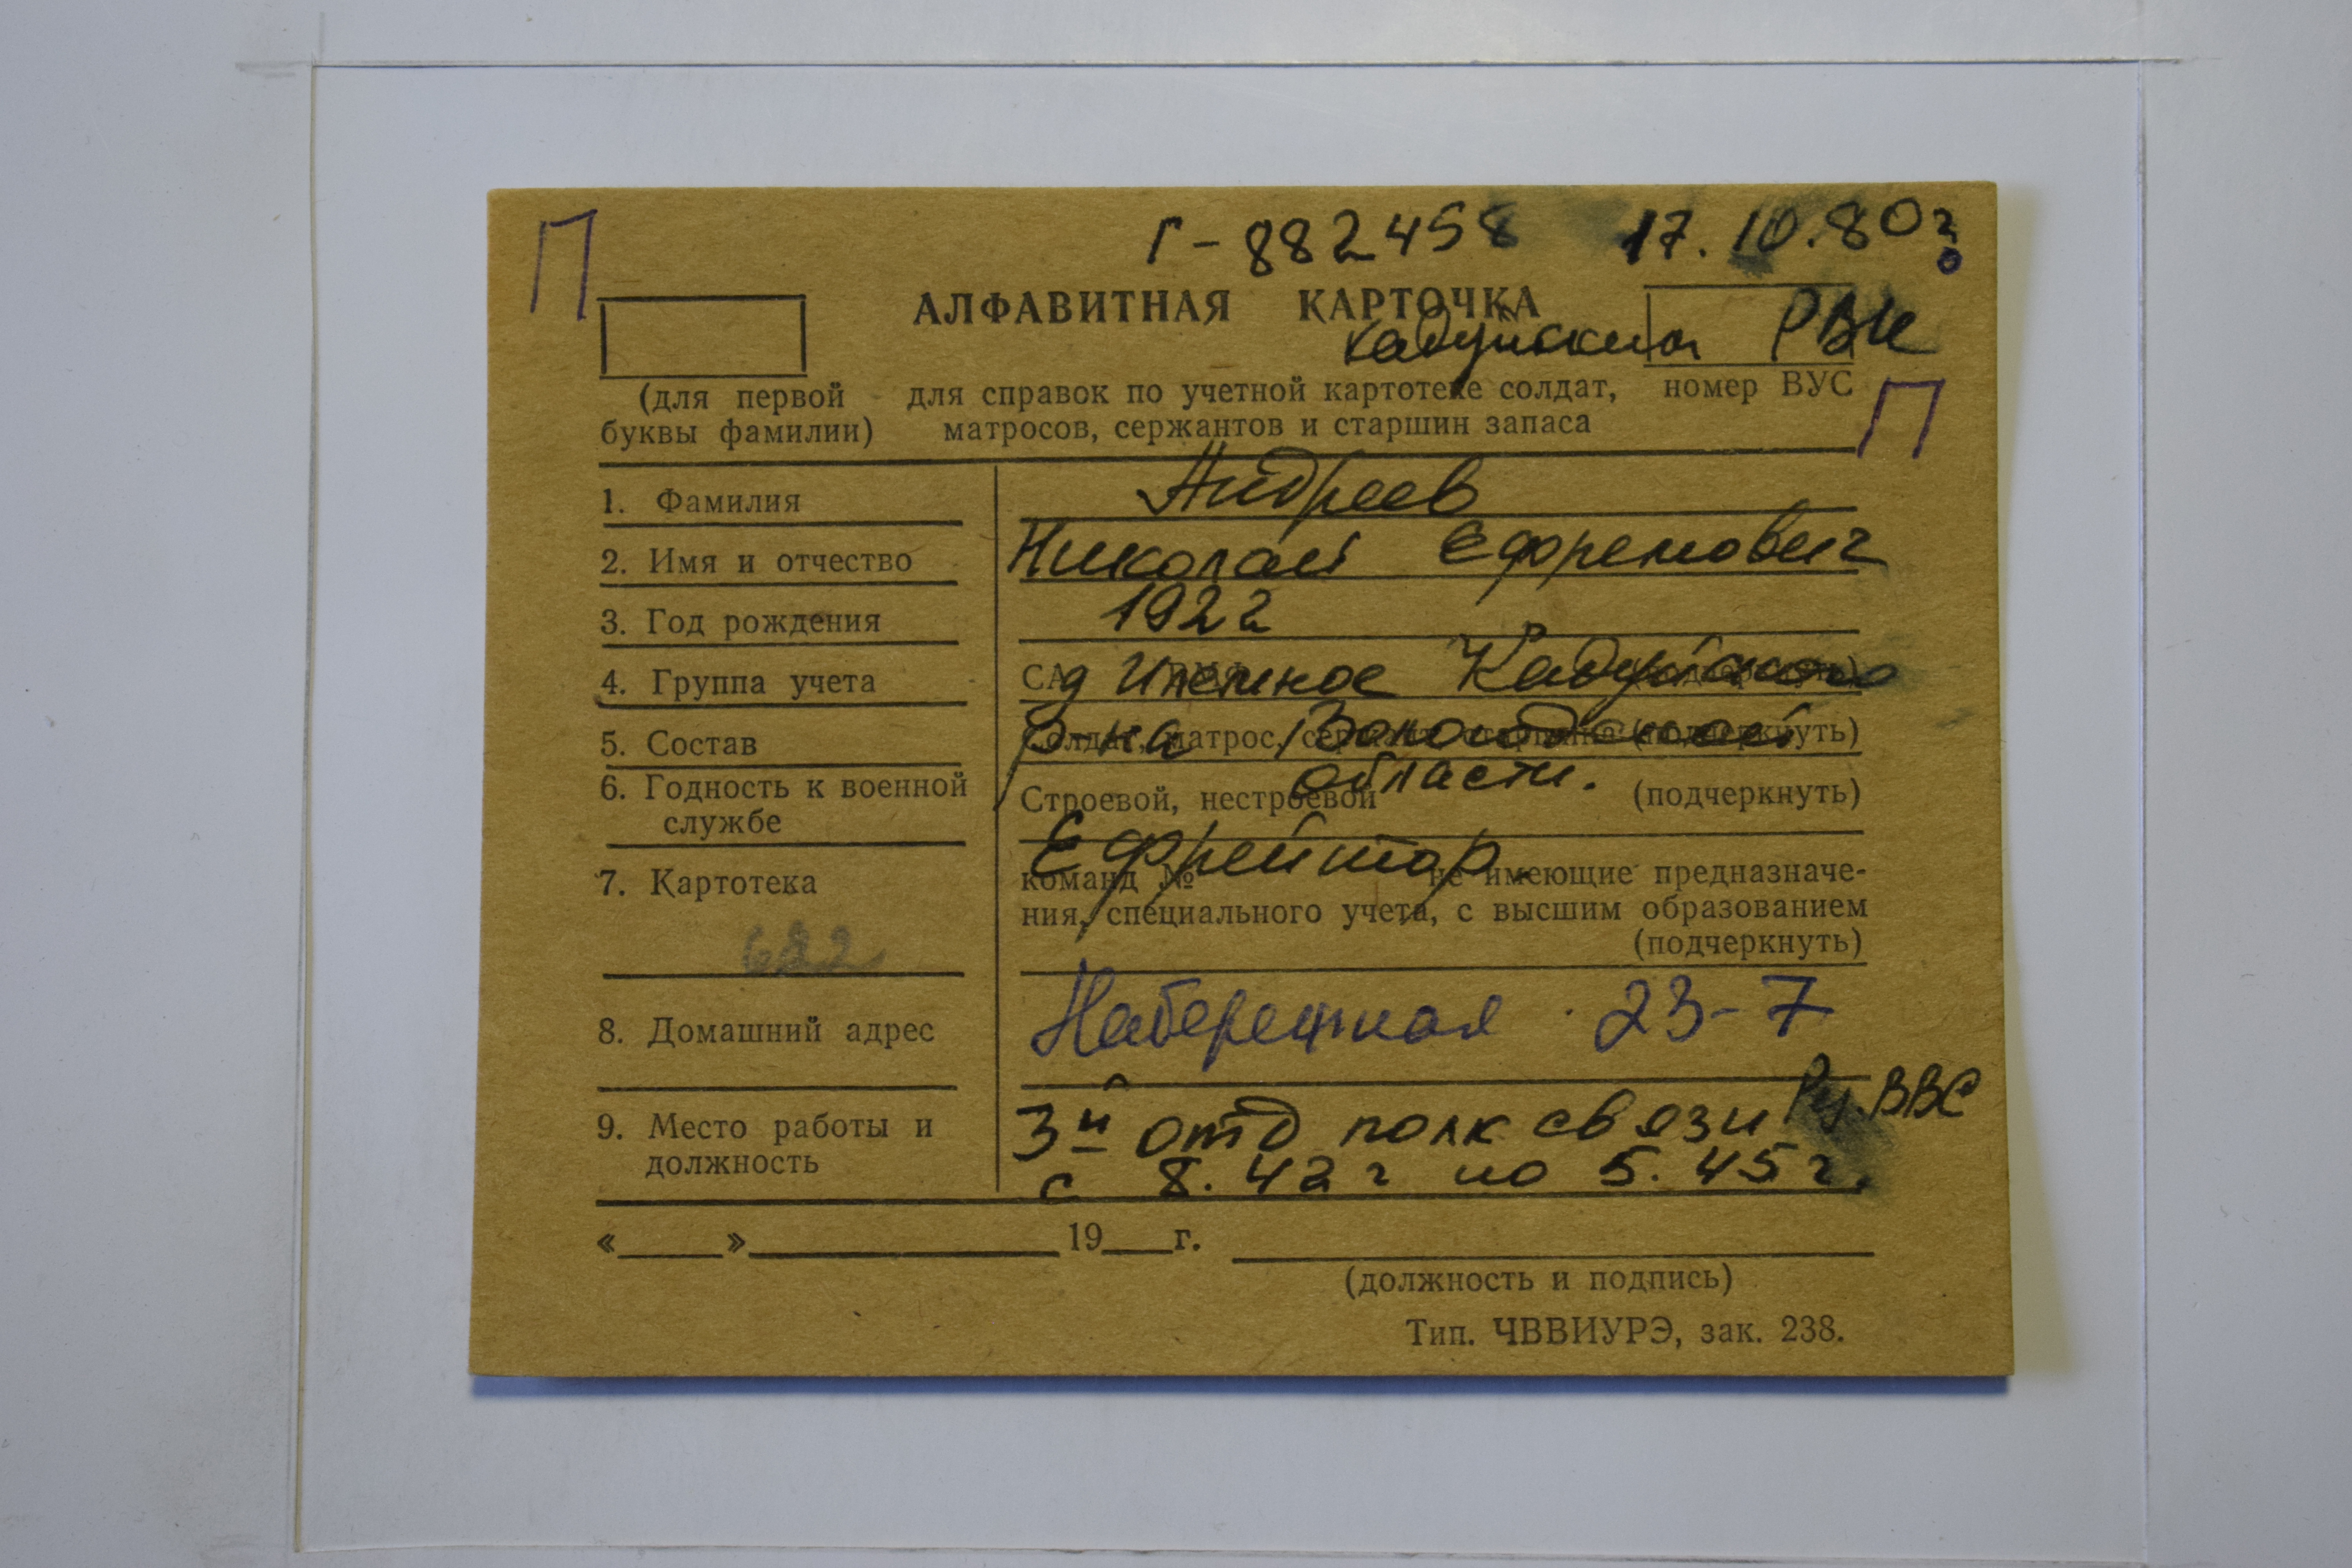 П
Г-882458 17.10.80г.
АЛФАВИТНАЯ КАРТОЧКА
Кадуйский РВК
(для первой буквы фамилии)
для справок по учетной картотеке солдат,
матросов, сержантов и старшин запаса
номер ВУС
П
1. Фамилия Андреев
2. Имя и отчество Николай Ефремович
3. Год рождения 1922
4. Группа учета СА д Кадуйского
5. Состав Солдат, матрос, (подчеркнуть) р-на Вологодской
области.
6. Годность к военной службе Строевой, нестроевой (подчеркнуть)
Ефрейтор
7. Картотека команд № не имеющие предназначе-
ния, специального учета, с высшим образованием
(подчеркнуть)
8. Домашний адрес Набережная 23-7
9. Место работы и должность 3й отд полк связи ВВС
с 8.42г по 5.45г.
«___»___19__г.
(должность и подпись)
Тип. ЧВВИУРЭ, зак. 238.